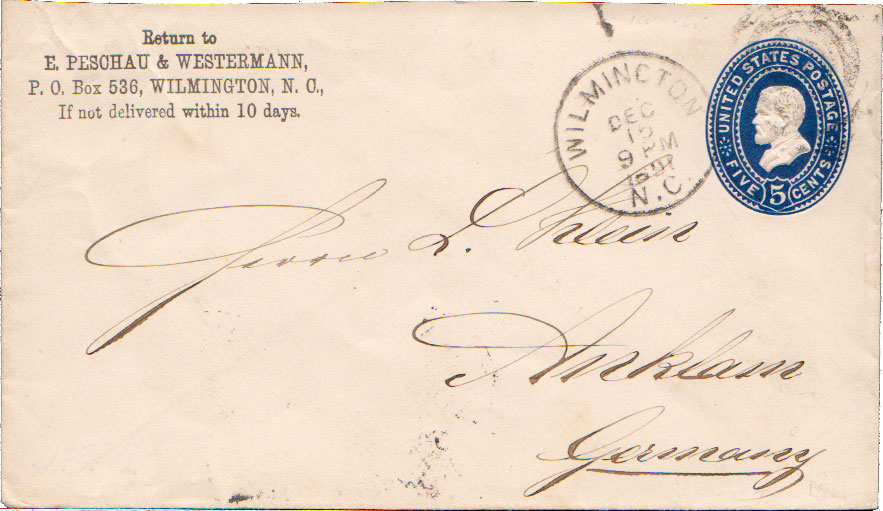 Return to
E. PESCHAU & WESTERMANN,
P. O. Box 536, WILMINGTON, N. C.,
If not delivered within 10 days.
WILMINGTON
DEC
9 PM
N.C.
UNITED STATES POSTAGE
FIVE 5 CENTS
Herrn L. Klein
Anklam
Germany